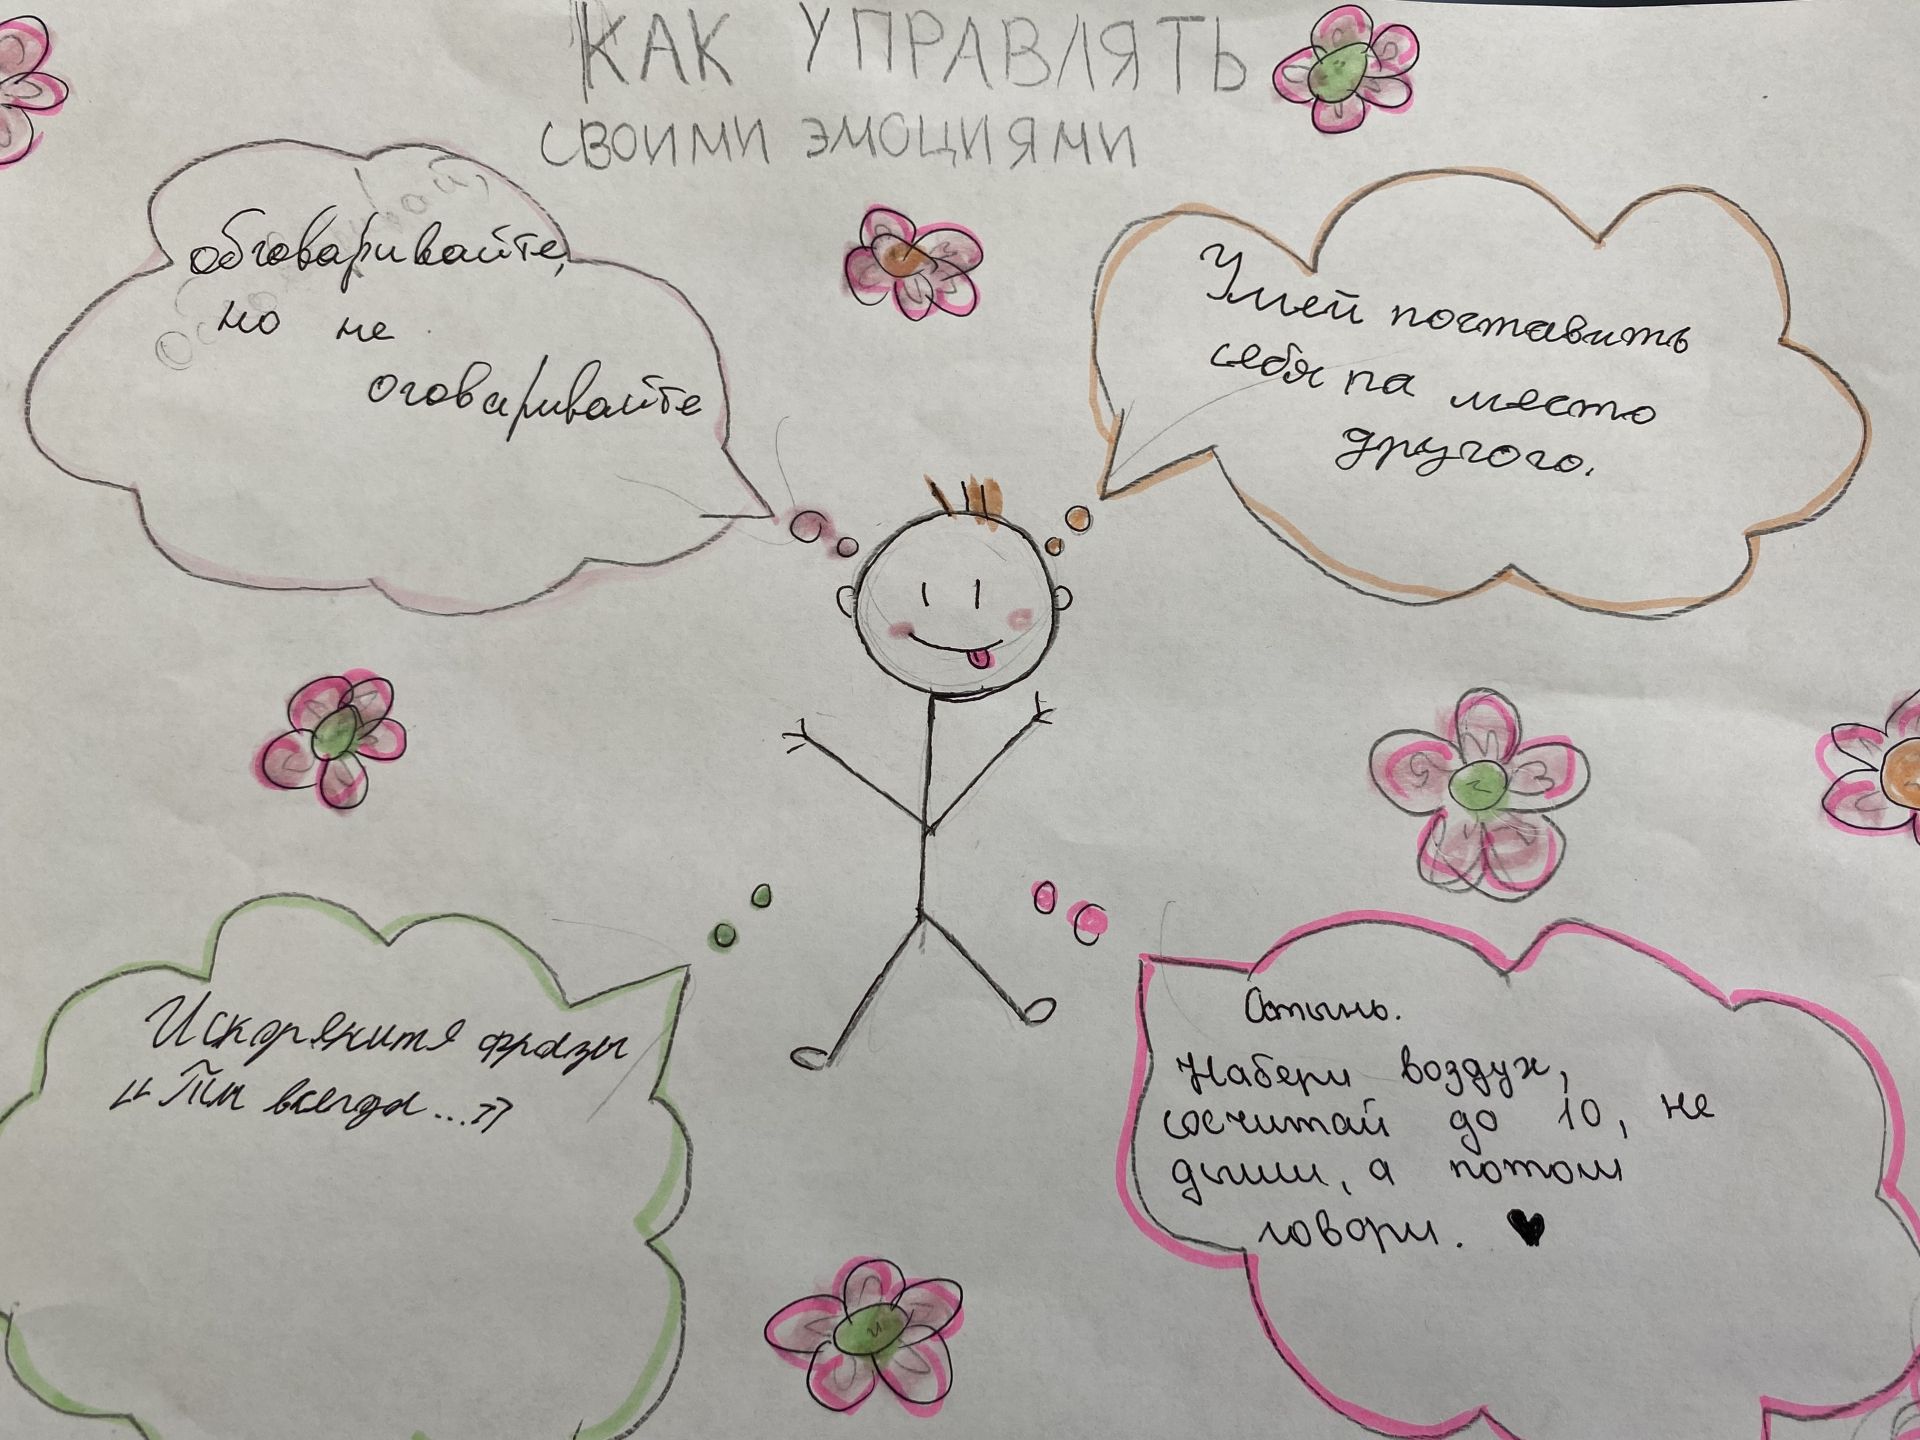 КАК УПРАВЛЯТЬ
СВОИМИ ЭМОЦИЯМИ
обговаривайте,
но не
оговаривайте
Умей поставить
себя на место
другого.
Искорените фразы
"Ты всегда..."
Остынь.
Набери воздух,
сосчитай до 10, не
дыши, а потом
говори.